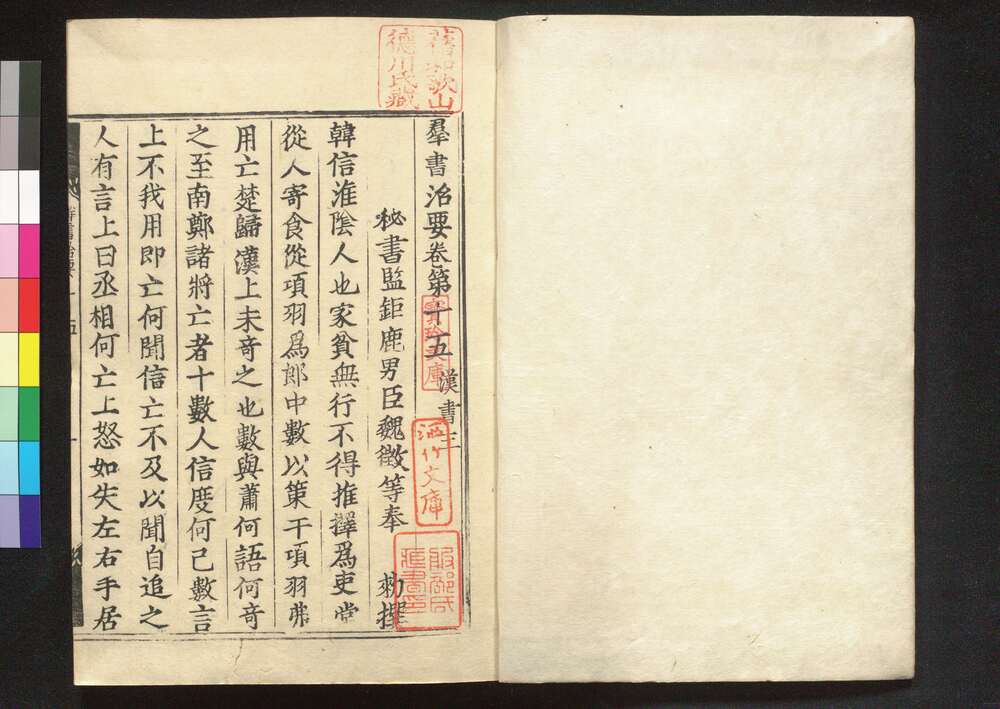 羣書治要卷第十五 漢書三
秘書監鉅鹿男臣魏徵等奉 勑撰
韓信淮陰人也家貧無行不得推擇爲吏常
從人寄食從項羽爲郎中數以策干項羽弗
用亡楚歸漢上未奇之也數與蕭何語何奇
之至南鄭諸將亡者十數人信度何已數言
上不我用即亡何聞信亡不及以聞自追之
人有言上曰丞相何亡上怒如失左右手居
舊和歌山
德川氏藏
寶玲文庫
洒竹文庫
服部氏
藏書印